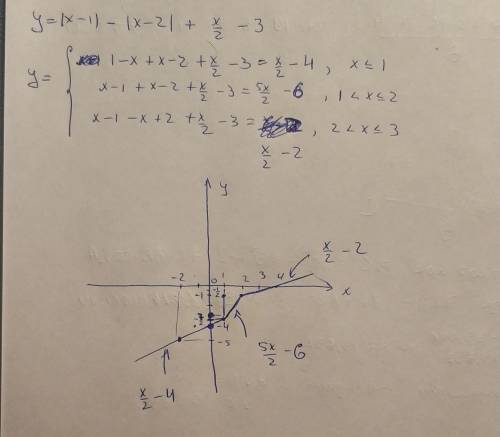 y = |x-1| - |x-2| + x/2 - 3
y = { 1-x + x-2 + x/2 - 3 = x/2 - 4 , x ≤ 1
x-1 + x-2 + x/2 - 3 = 5x/2 - 6 , 1 < x ≤ 2
x-1 - x+2 + x/2 - 3 = , 2 < x ≤ 3
x/2 - 2
y
x/2 - 2
-2 0 1 2 3 4
x
-1 -1/2
-4
-5
5x/2 - 6
x/2 - 4